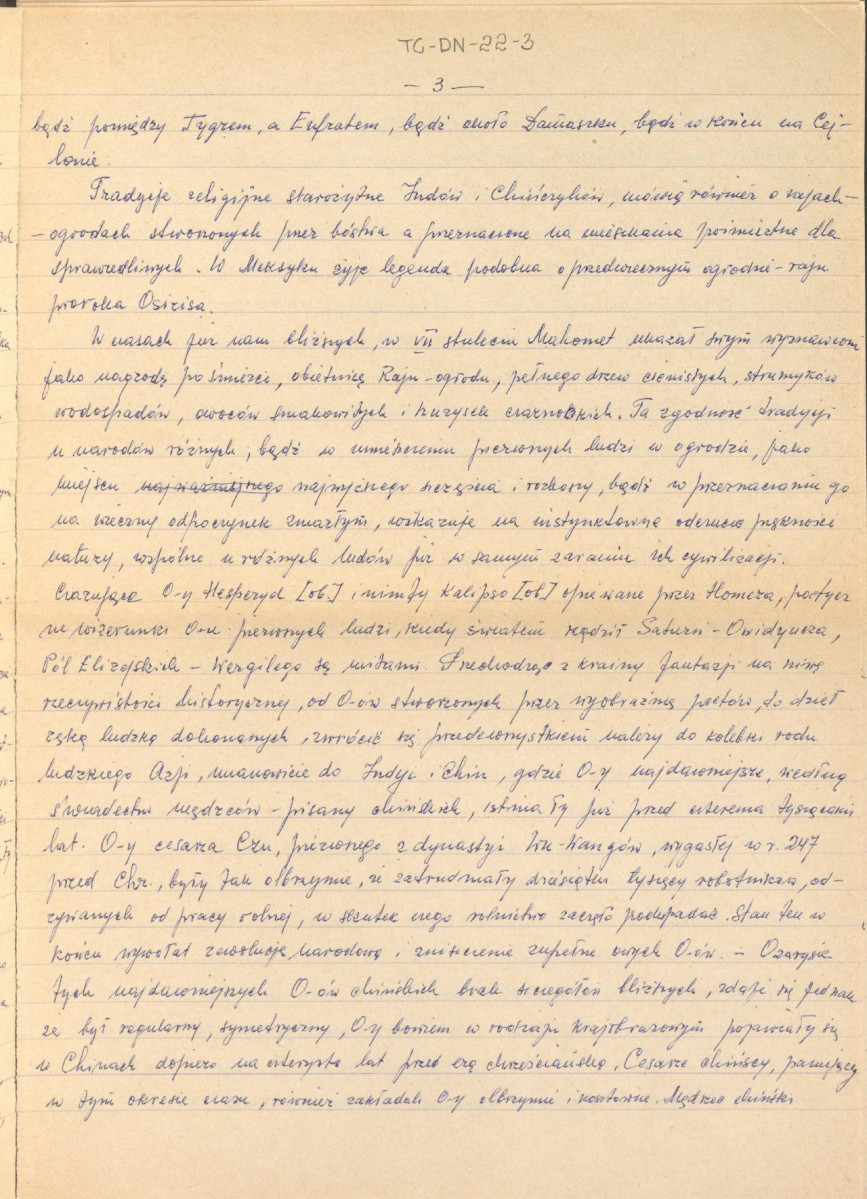 TG-DN-22-3
- 3 -
bądź pomiędzy Tygrem, a Eufratem, bądź około Damaszku, bądź w końcu na Cej-
lonie.
Tradycje religijne starożytne Indów i Chińczyków, mówią również o rajach-
- ogrodach stworzonych przez bóstwa a przeznaczone na mieszkania pośmiertne dla
sprawiedliwych. W Meksyku żyje legenda podobna o przedwiecznym ogrodzie-raju
proroka Osirisa.
W czasach już nam bliższych, w VII stuleciu Mahomet ukazał swym wyznawcom
jako nagrodę po śmierci, obietnicę Raju-ogrodu, pełnego drzew cienistych, strumyków
wodospadów, owoców smakowitych i hurysek czarnookich. Ta zgodność tradycji
u narodów różnych, bądź w umieszczeniu pierwszych ludzi w ogrodzie, jako
miejscu najważniejszego najwyższego szczęścia i rozkoszy, bądź w przeznaczaniu go
na wieczny odpoczynek zmarłym, wskazuje na instynktowne odczucie piękności
natury, wspólne u różnych ludów już w samym zaraniu ich cywilizacji.
Czarujące O-y Hesperyd [ob.] i nimfy Kalipso [ob.] opiewane przez Homera, poetycz
ne wizerunki O-u pierwszych ludzi, kiedy światem rządził Saturn - Owidyusza,
Pól Elizejskich - Wergilego są mitami. Przechodząc z krainy fantazji na niwę
rzeczywistości historycznej, od O-ów stworzonych przez wyobraźnię poetów, do dzieł
ręką ludzką dokonanych, zwrócić się przedewszystkiem należy do kolebki rodu
ludzkiego Azji, mianowicie do Indyi i Chin, gdzie O-y najdawniejsze, według
świadectw mędrców - pisarzy chińskich, istniały już przed czterema tysiącami
lat. O-y cesarza Czu, pierwszego z dynastyi Wu-Wangów, wygasłej w r. 247
przed Chr., były tak olbrzymie, że zatrudniały dziesiątki tysięcy robotników, od-
rywanych od pracy rolnej, w skutek czego rolnictwo zaczęło podupadać. Stan ten w
końcu wywołał rewolucję narodową i zniszczenie zupełne owych O-ów. - O zarysie
tych najdawniejszych O-ów chińskich brak szczegółów bliższych, zdaje się jednak
że był regularny, symetryczny, O-y bowiem w rodzaju krajobrazowym pojawiały się
w Chinach dopiero na czterysta lat przed erą chrześciańską. Cesarze chińscy, panujący
w tym okresie czasu, również zakładali O-y olbrzymie i kosztowne. Mędrzec chiński